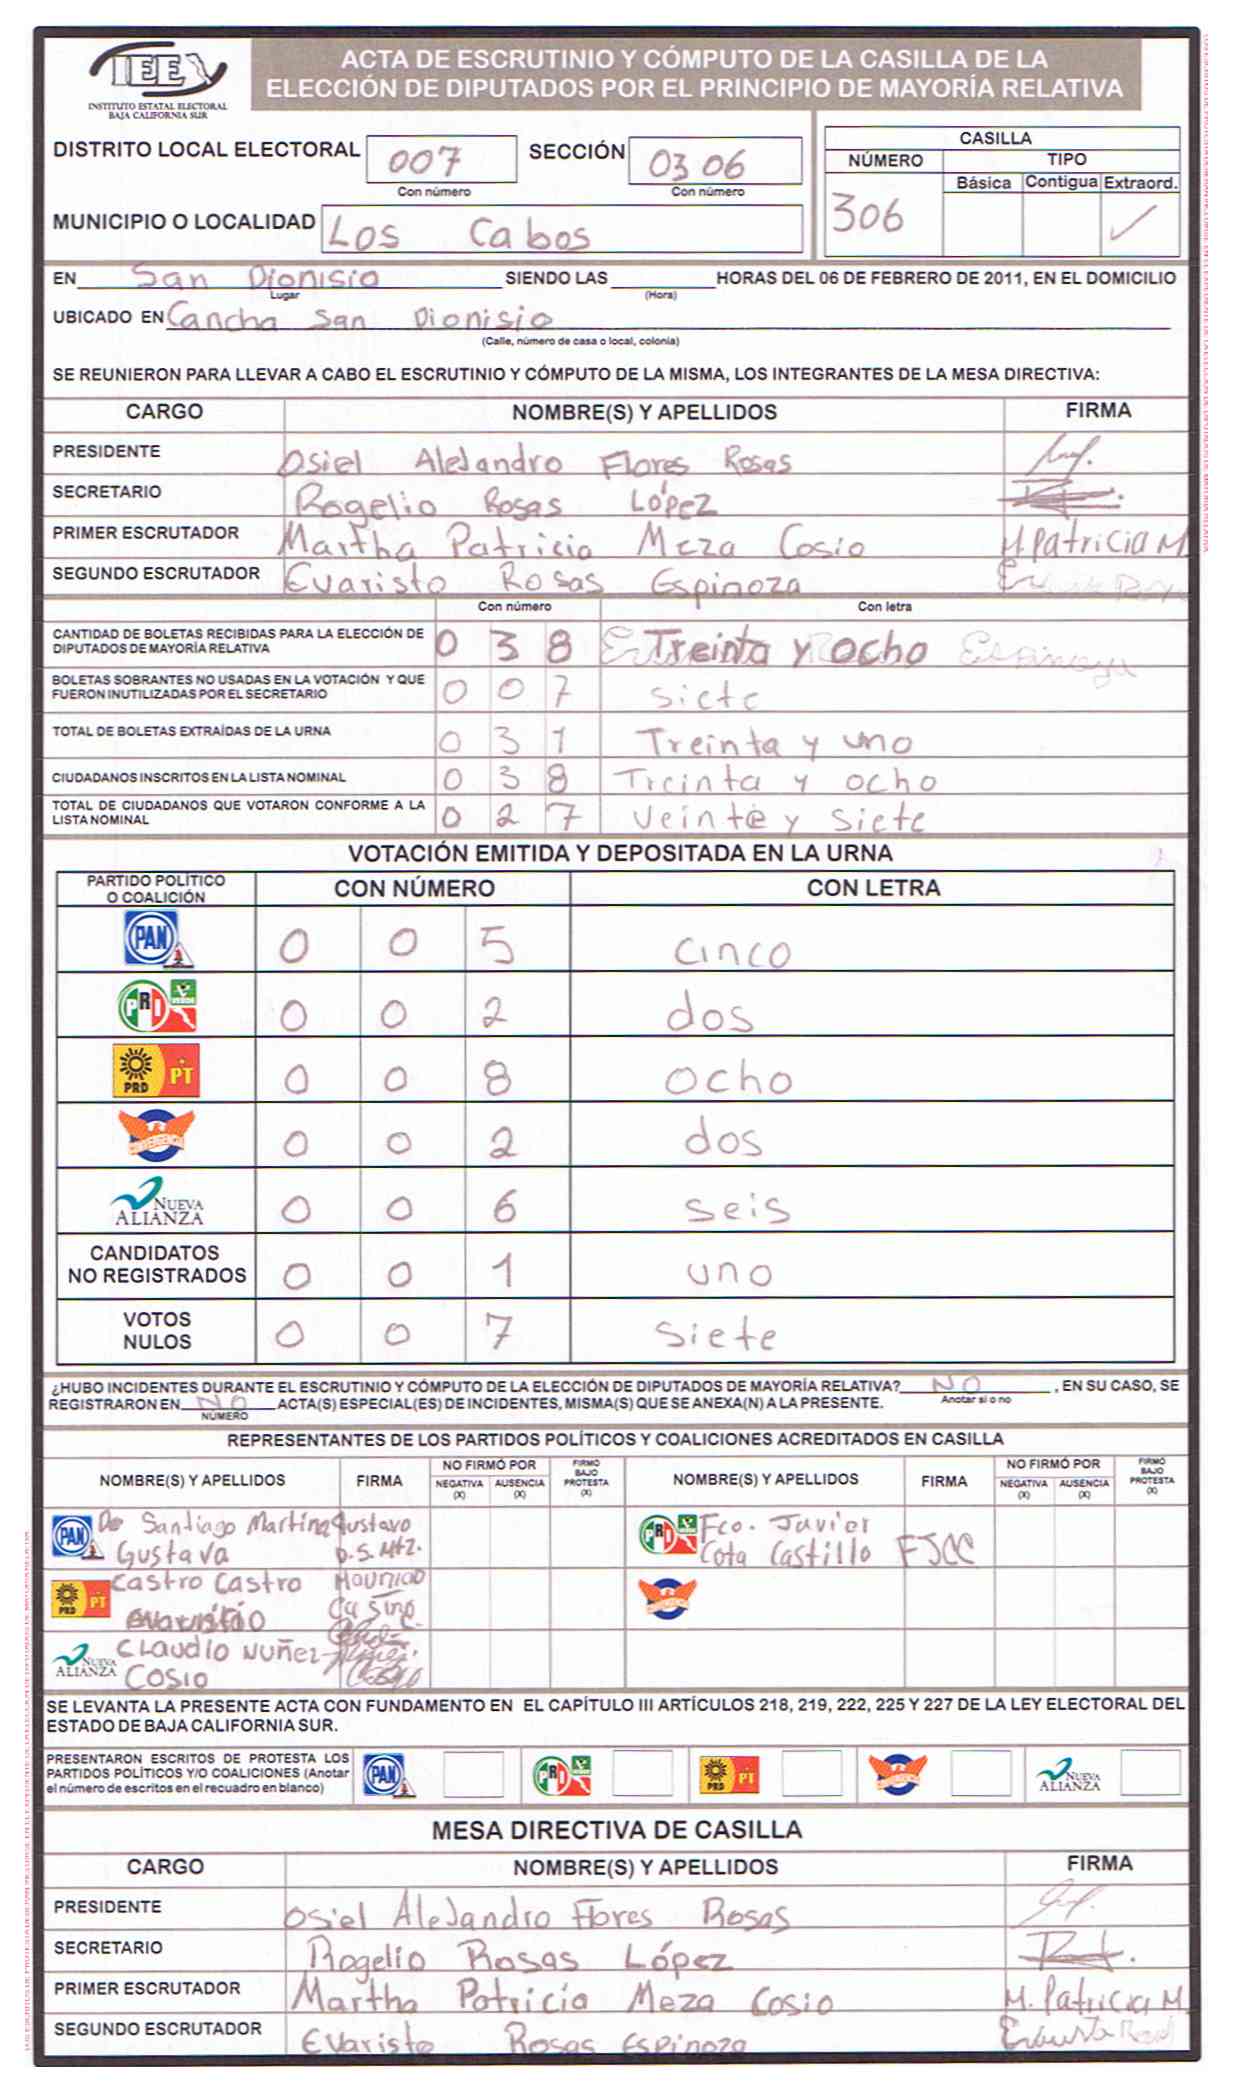 IEE
INSTITUTO ESTATAL ELECTORAL
BAJA CALIFORNIA SUR
ACTA DE ESCRUTINIO Y CÓMPUTO DE LA CASILLA DE LA
ELECCIÓN DE DIPUTADOS POR EL PRINCIPIO DE MAYORÍA RELATIVA
DISTRITO LOCAL ELECTORAL 007 SECCIÓN 0306
Con número Con número
MUNICIPIO O LOCALIDAD Los Cabos
CASILLA
NÚMERO TIPO
Básica Contigua Extraord.
306 ✓
EN San Dionisio SIENDO LAS HORAS DEL 06 DE FEBRERO DE 2011, EN EL DOMICILIO
Lugar (Hora)
UBICADO EN Cancha San Dionisio
(Calle, número de casa o local, colonia)
SE REUNIERON PARA LLEVAR A CABO EL ESCRUTINIO Y CÓMPUTO DE LA MISMA, LOS INTEGRANTES DE LA MESA DIRECTIVA:
CARGO NOMBRE(S) Y APELLIDOS FIRMA
PRESIDENTE Osiel Alejandro Flores Rosas
SECRETARIO Rogelio Rosas López
PRIMER ESCRUTADOR Martha Patricia Meza Cosio M. Patricia M
SEGUNDO ESCRUTADOR Evaristo Rosas Espinoza
Con número Con letra
CANTIDAD DE BOLETAS RECIBIDAS PARA LA ELECCIÓN DE
DIPUTADOS DE MAYORÍA RELATIVA 0 3 8 Treinta y ocho
BOLETAS SOBRANTES NO USADAS EN LA VOTACIÓN Y QUE
FUERON INUTILIZADAS POR EL SECRETARIO 0 0 7 siete
TOTAL DE BOLETAS EXTRAÍDAS DE LA URNA 0 3 1 Treinta y uno
CIUDADANOS INSCRITOS EN LA LISTA NOMINAL 0 3 8 Treinta y ocho
TOTAL DE CIUDADANOS QUE VOTARON CONFORME A LA
LISTA NOMINAL 0 2 7 veinte y siete
VOTACIÓN EMITIDA Y DEPOSITADA EN LA URNA
PARTIDO POLÍTICO
O COALICIÓN CON NÚMERO CON LETRA
PAN 0 0 5 cinco
PRI VERDE 0 0 2 dos
PRD PT 0 0 8 ocho
CONVERGENCIA 0 0 2 dos
NUEVA ALIANZA 0 0 6 seis
CANDIDATOS
NO REGISTRADOS 0 0 1 uno
VOTOS
NULOS 0 0 7 siete
¿HUBO INCIDENTES DURANTE EL ESCRUTINIO Y CÓMPUTO DE LA ELECCIÓN DE DIPUTADOS DE MAYORÍA RELATIVA? NO , EN SU CASO, SE
Anotar si o no
REGISTRARON EN NO ACTA(S) ESPECIAL(ES) DE INCIDENTES, MISMA(S) QUE SE ANEXA(N) A LA PRESENTE.
NÚMERO
REPRESENTANTES DE LOS PARTIDOS POLÍTICOS Y COALICIONES ACREDITADOS EN CASILLA
NOMBRE(S) Y APELLIDOS FIRMA NO FIRMÓ POR NEGATIVA (X) AUSENCIA (X) FIRMÓ BAJO PROTESTA (X) NOMBRE(S) Y APELLIDOS FIRMA NO FIRMÓ POR NEGATIVA (X) AUSENCIA (X) FIRMÓ BAJO PROTESTA (X)
PAN De Santiago Martinez Gustavo PRI VERDE Fco. Javier
Gustavo D.S. Mtz. Cota Castillo FJCC
PRD PT Castro Castro
NUEVA ALIANZA Claudio Nuñez
Cosio
SE LEVANTA LA PRESENTE ACTA CON FUNDAMENTO EN EL CAPÍTULO III ARTÍCULOS 218, 219, 222, 225 Y 227 DE LA LEY ELECTORAL DEL
ESTADO DE BAJA CALIFORNIA SUR.
PRESENTARON ESCRITOS DE PROTESTA LOS
PARTIDOS POLÍTICOS Y/O COALICIONES (Anotar
el número de escritos en el recuadro en blanco)
PAN PRI VERDE PRD PT CONVERGENCIA NUEVA ALIANZA
MESA DIRECTIVA DE CASILLA
CARGO NOMBRE(S) Y APELLIDOS FIRMA
PRESIDENTE Osiel Alejandro Flores Rosas
SECRETARIO Rogelio Rosas López
PRIMER ESCRUTADOR Martha Patricia Meza Cosio M. Patricia M
SEGUNDO ESCRUTADOR Evaristo Rosas Espinoza